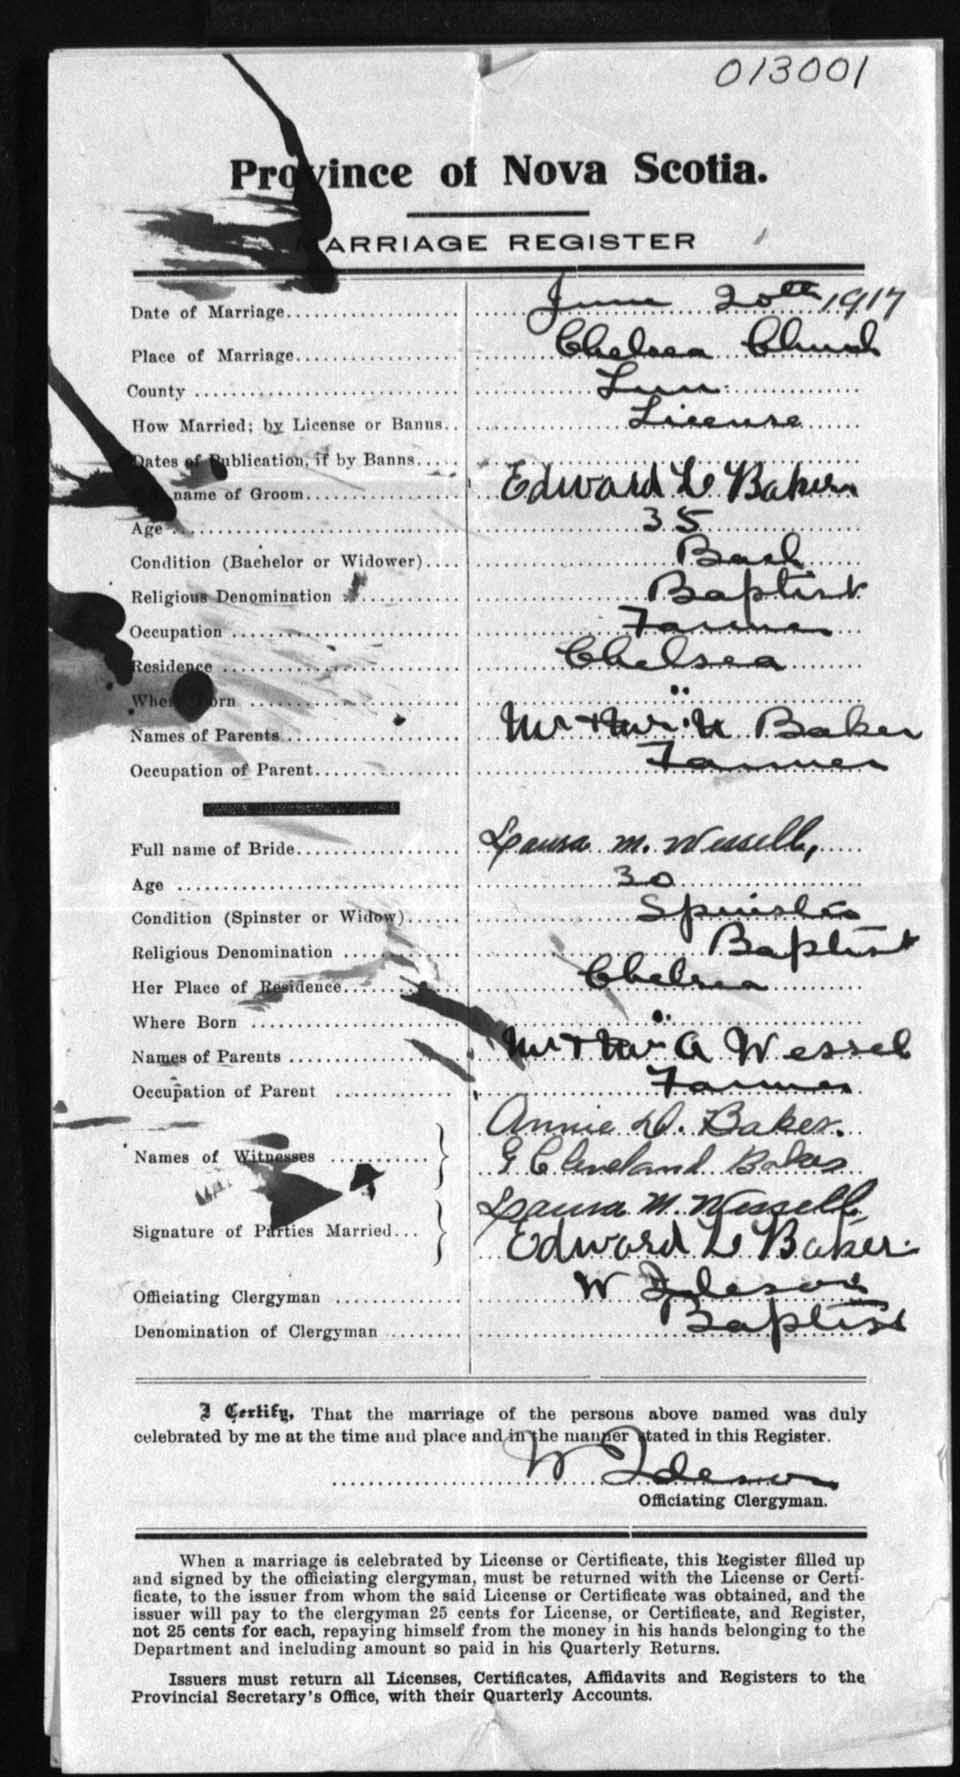 013001
Province of Nova Scotia.
MARRIAGE REGISTER
Date of Marriage June 20th 1917
Place of Marriage Chelsea Church
County Lun
How Married; by License or Banns License
Dates of Publication, if by Banns
name of Groom Edward L Baker
Age 35
Condition (Bachelor or Widower) Bach
Religious Denomination Baptist
Occupation Farmer
Residence Chelsea
Where Born "
Names of Parents Mr + Mrs N Baker
Occupation of Parent Farmer
Full name of Bride Laura M. Wessell,
Age 30
Condition (Spinster or Widow) Spinster
Religious Denomination Baptist
Her Place of Residence Chelsea
Where Born "
Names of Parents Mr + Mrs A Wessel
Occupation of Parent Farmer
Annie D. Baker.
Names of Witnesses
G Cleveland Baker
Laura M. Wessell
Signature of Parties Married
Edward L Baker
Officiating Clergyman W
Denomination of Clergyman Baptist
I Certify, That the marriage of the persons above named was duly
celebrated by me at the time and place and in the manner stated in this Register.
W
Officiating Clergyman.
When a marriage is celebrated by License or Certificate, this Register filled up
and signed by the officiating clergyman, must be returned with the License or Certi-
ficate, to the issuer from whom the said License or Certificate was obtained, and the
issuer will pay to the clergyman 25 cents for License, or Certificate, and Register,
not 25 cents for each, repaying himself from the money in his hands belonging to the
Department and including amount so paid in his Quarterly Returns.
Issuers must return all Licenses, Certificates, Affidavits and Registers to the
Provincial Secretary's Office, with their Quarterly Accounts.